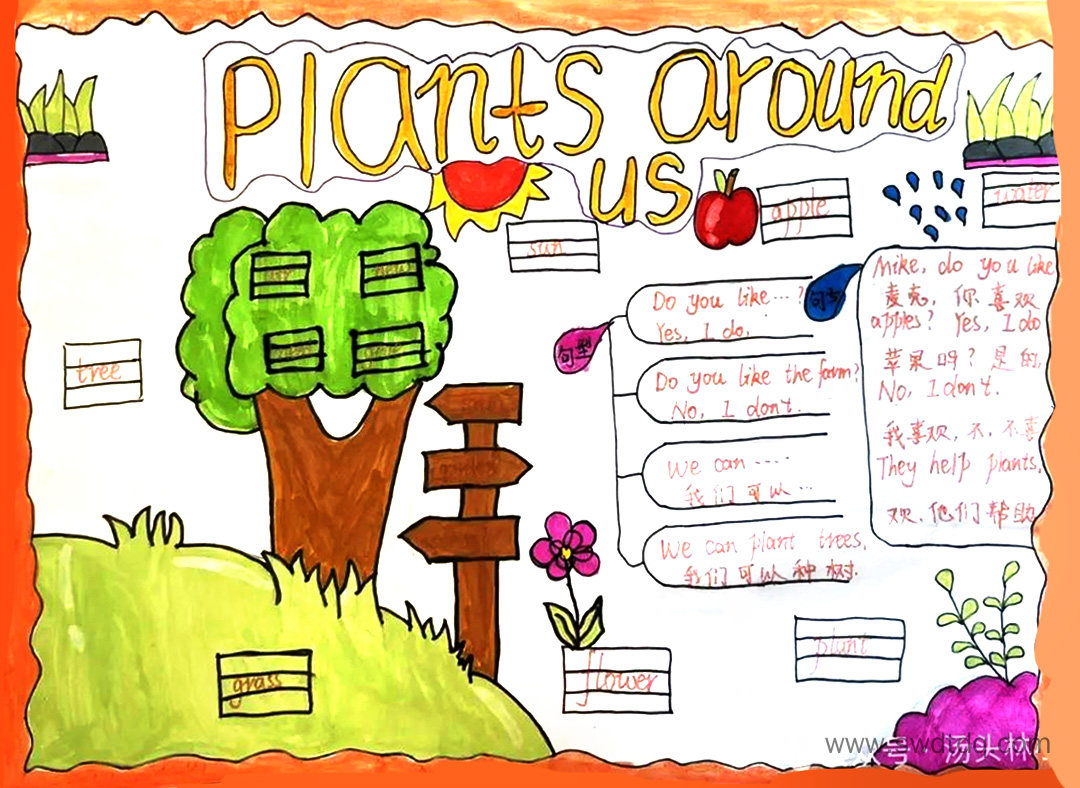 Plants around
us
apple
water
sun
tree
句型
Do you like ...?
Yes, I do.
Do you like the farm?
No, I don't.
We can ....
我们可以...
We can plant trees.
我们可以种树.
Mike, do you like
麦克, 你喜欢
apples? Yes, I do
苹果吗? 是的,
No, I don't.
我喜欢, 不, 不喜
They help plants.
欢, 他们帮助
grass
flower
plant